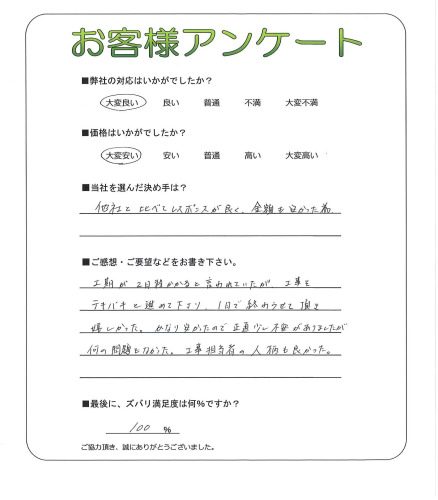 お客様アンケート
■弊社の対応はいかがでしたか？
大変良い 良い 普通 不満 大変不満
■価格はいかがでしたか？
大変安い 安い 普通 高い 大変高い
■当社を選んだ決め手は？
他社と比べてレスポンスが良く、金額も良かった為
■ご感想・ご要望などをお書き下さい。
工期が2日程かかると言われていたが、工事を
テキパキと進めて下さり、1日で終わらせて頂き
嬉しかった。かなり安かったので正直少し不安がありましたが
何の問題もなかった。工事担当者の人柄も良かった。
■最後に、ズバリ満足度は何%ですか？
100 %
ご協力頂き、誠にありがとうございました。